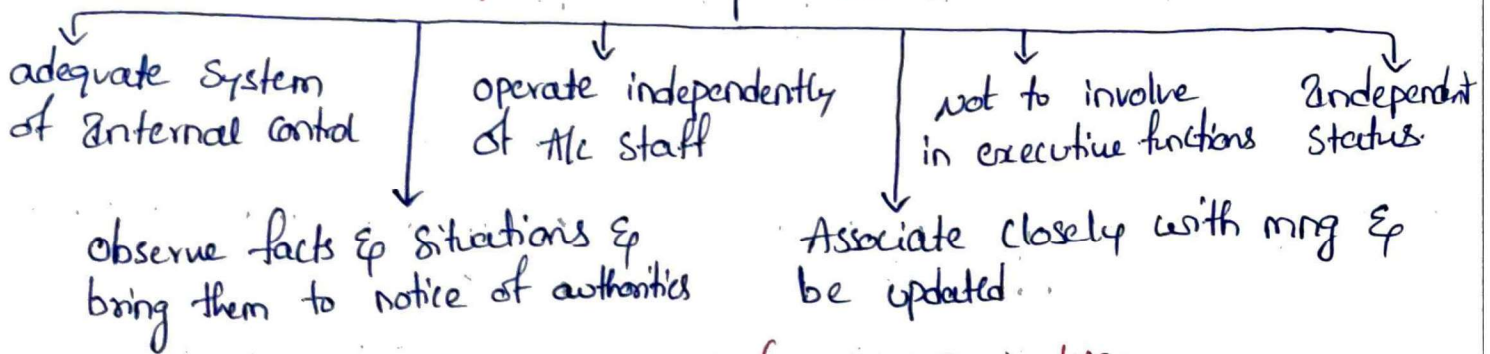 adequate system
of internal control
operate independently
of A/c staff
Not to involve
in executive functions
independent
status.
observe facts & situations &
bring them to notice of authorities
Associate closely with mng &
be updated..